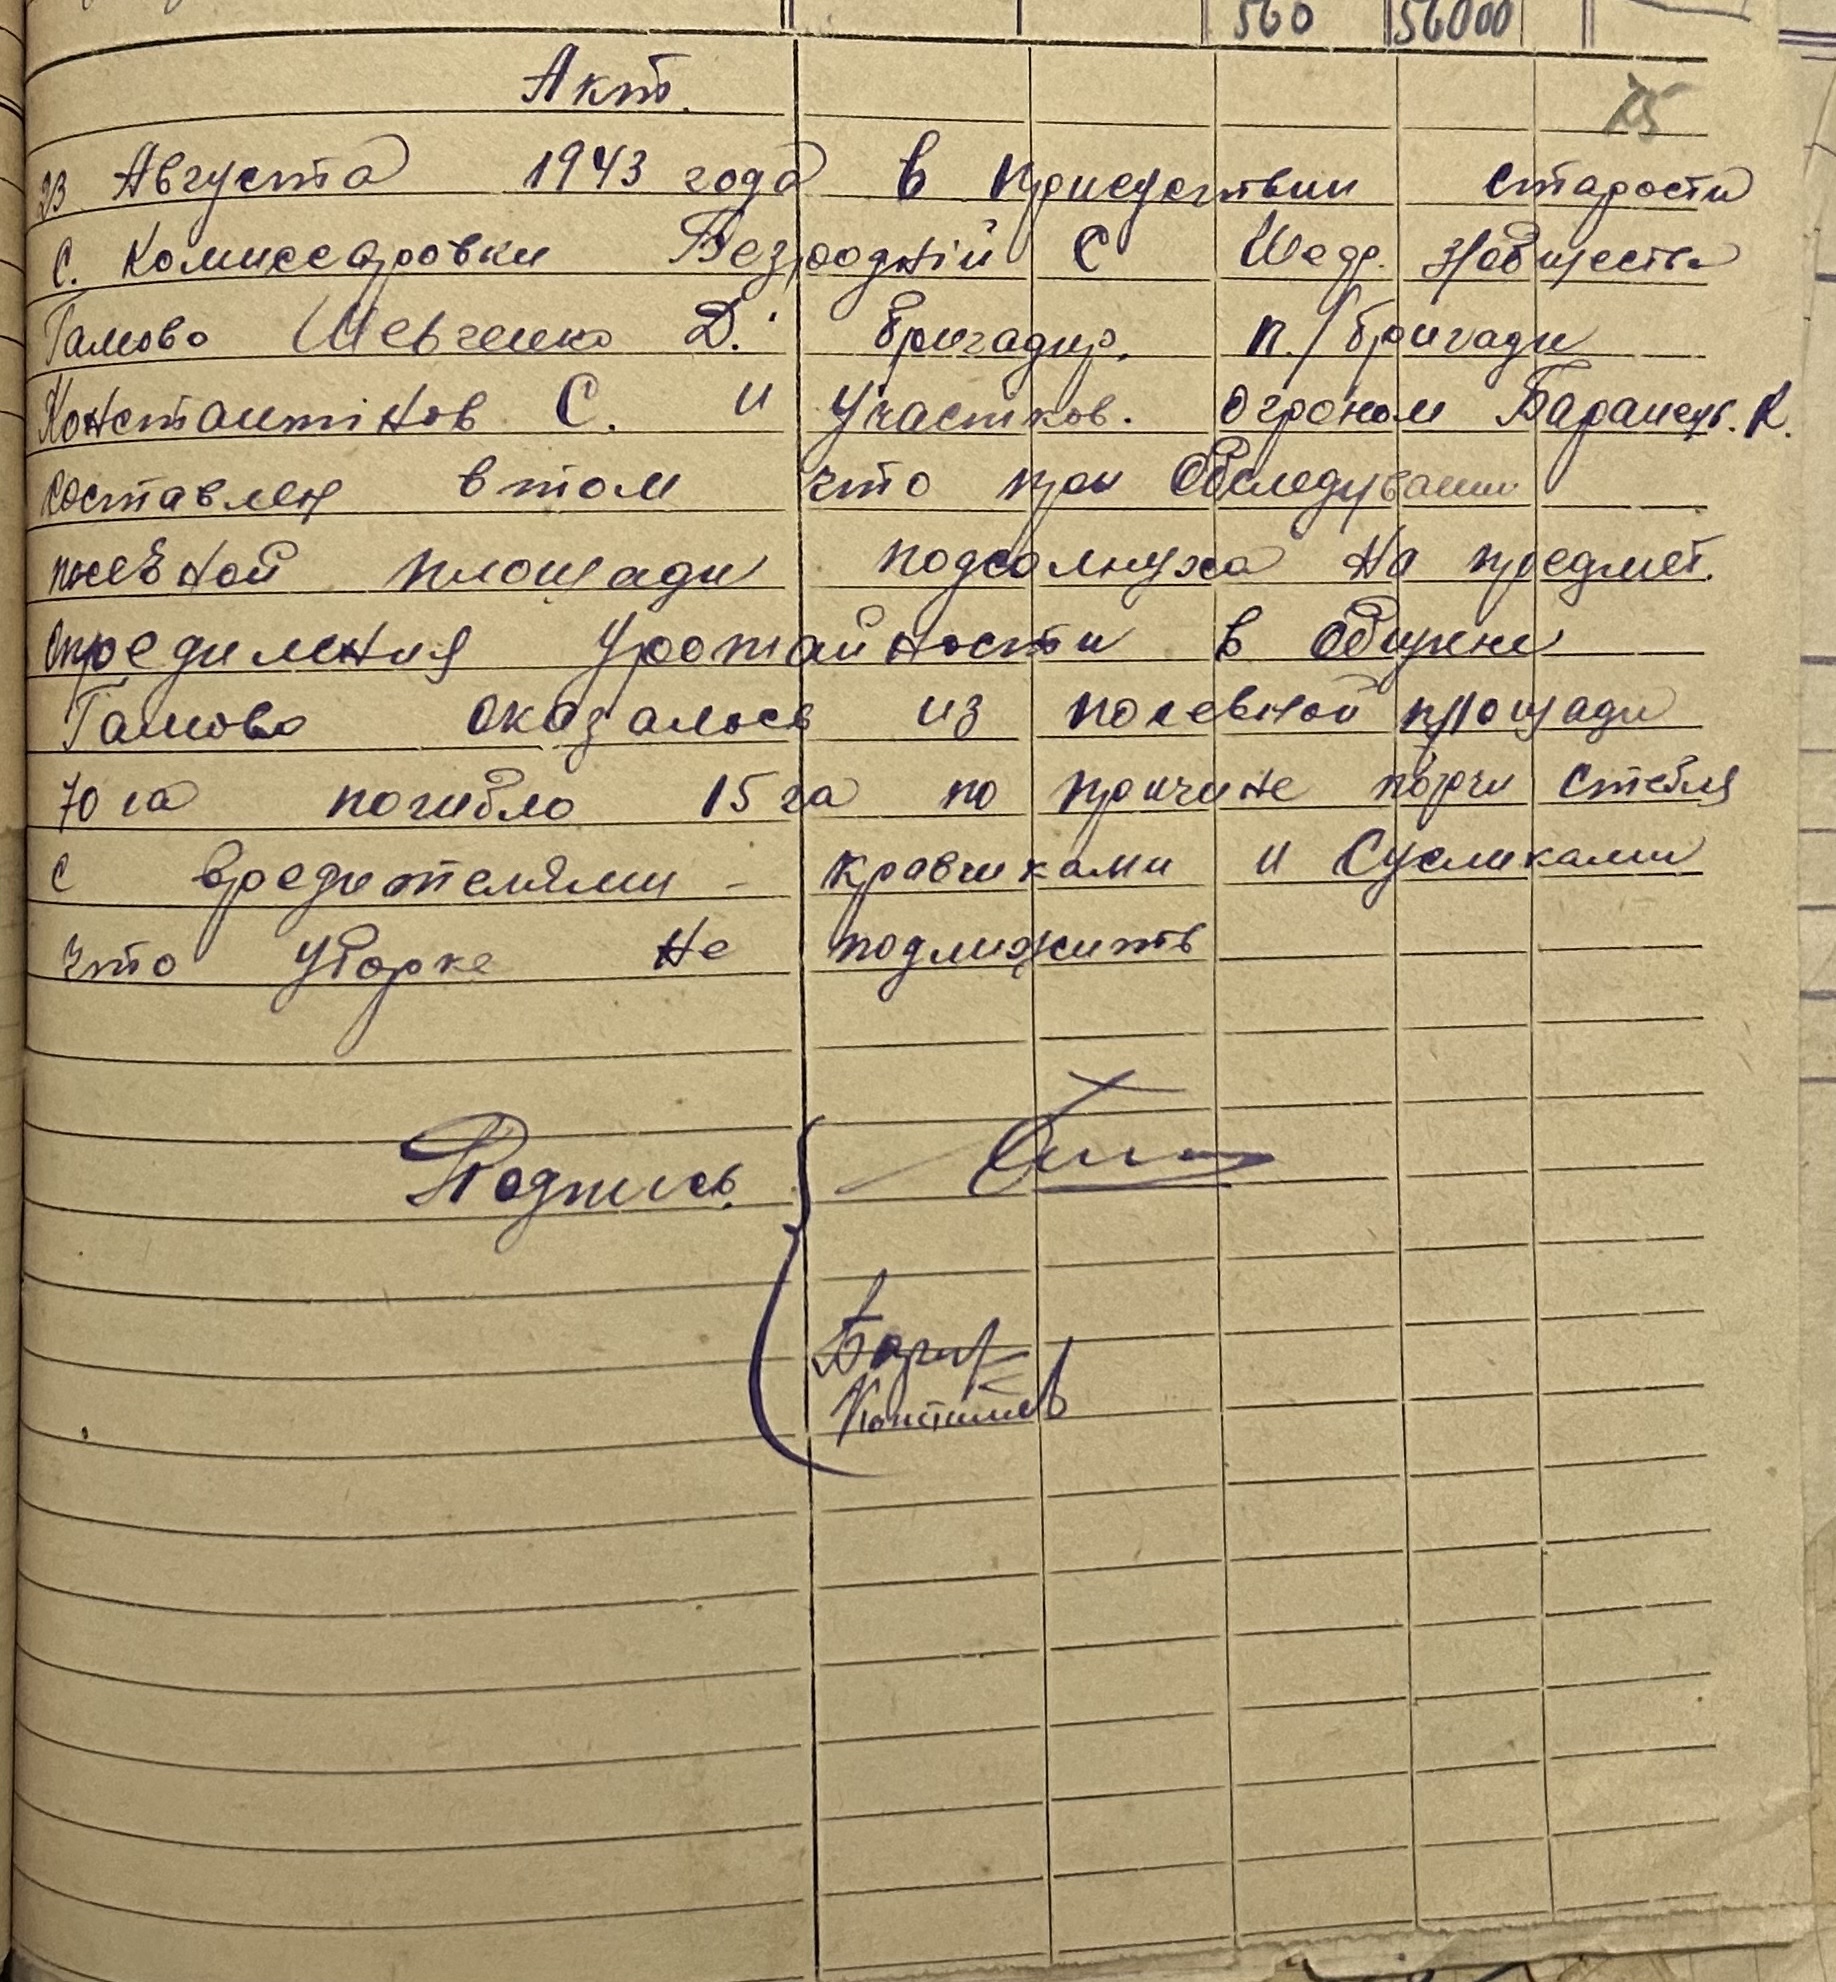 560 56000
Акт.
75
23 Августа 1943 года в присуствии старости
с. Комиссаровки Безродній С
Гамова Шевченко Д. бригадир. п./бригади
Константінов С. и Участков. огроном К.
составлен в том что при обследувании
посевной площади подсолнуха на предмет.
определения урожайности в общине
Гамова оказалось из посевной площади
70 га погибло 15 га по причине порчи стебля
с вредителями - кравчиками и Сусликами
что уборке не подлижить
Подпись.